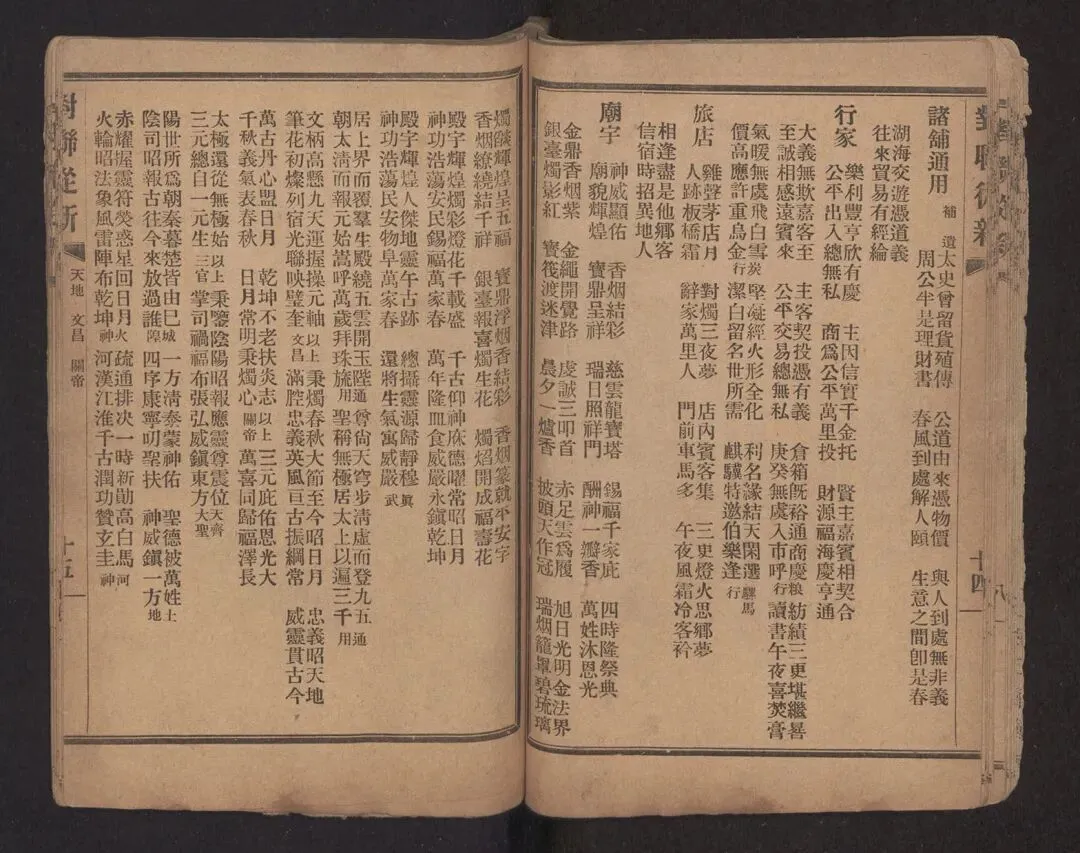 對聯從新
十四
諸鋪通用 補遺 太史曾留貨殖傳 公道由來憑物價 與人到處無非義
周公半是理財書 春風到處解人頤 生意之間卽是春
湖海交遊憑道義
往來貿易有經綸
行家 樂利豐亨欣有慶 主因信實千金托 賢主嘉賓相契合
公平出入總無私 商爲公平萬里投 財源福海慶亨通
大義無欺嘉客至 主客契投憑有義 倉箱旣裕通商慶 糧 紡績三更堪繼晷
至誠相感遠賓來 公平交易總無私 庚癸無虞入市呼 行 讀書午夜喜焚膏
氣暖無虞飛白雪 炭 堅凝經火形全化 利名緣結天閑選 騾馬
價高應許重烏金 行 潔白留名世所需 麒驥特邀伯樂逢 行
旅店 雞聲茅店月 對燭三夜夢 店內賓客集 三更燈火思鄉夢
人跡板橋霜 辭家萬里人 門前車馬多 午夜風霜冷客衿
相逢盡是他鄉客
信宿時招異地人
廟宇 神威顯佑 香烟結彩 慈雲龍寶塔 錫福千家庇 四時隆祭典
廟貌輝煌 寶鼎呈祥 瑞日照祥門 酬神一瓣香 萬姓沐恩光
金鼎香烟紫 金繩開覺路 虔誠三叩首 赤足雲爲履 旭日光明金法界
銀臺燭影紅 寶筏渡迷津 晨夕一爐香 披頭天作冠 瑞烟籠罩碧琉璃
燭燄輝煌呈五福 寶鼎浮烟香結彩 香烟篆就平安字
香烟繚繞結千祥 銀臺報喜燭生花 燭焰開成福壽花
殿宇輝煌燭彩燈花千載盛 千古仰神庥德曜常昭日月
神功浩蕩安民錫福萬家春 萬年隆血食威嚴永鎭乾坤
殿宇輝煌人傑地靈午古跡 總攝靈源歸靜穆 眞
神功浩蕩民安物阜萬家春 還將生氣寓威嚴 武
居上界而覆羣生殿繞五雲開玉陛 通 尊尙天穹步淸虛而登九五 通
朝太淸而報元始嵩呼萬歲拜珠旒 用 聖稱無極居太上以遍三千 用
文柄高懸九天運握操元軸 以上 秉燭春秋大節至今昭日月 忠義昭天地
筆花初燦列宿光聯映璧奎 文昌 滿腔忠義英風亘古振綱常 威靈貫古今
萬古丹心盟日月 乾坤不老扶炎志 以上 三元庇佑恩光大
千秋義氣表春秋 日月常明秉燭心 關帝 萬喜同歸福澤長
太極還從無極始 以上 秉鑒陰陽昭報應靈尊震位 天齊
三元總自一元生 三官 掌司禍福布張弘威鎭東方 大聖
陽世所爲朝秦暮楚皆由巳 城 一方淸泰蒙神佑 聖德被萬姓 土
陰司昭報古往今來放過誰 隍 四序康寧叨聖扶 神威鎭一方 地
赤耀握靈符熒惑星回日月 火 疏通排决一時新勛高白馬 河
火輪昭法象風雷陣布乾坤 神 河漢江淮千古潤功贊玄圭 神
對聯從新
天地 文昌 關帝
十五